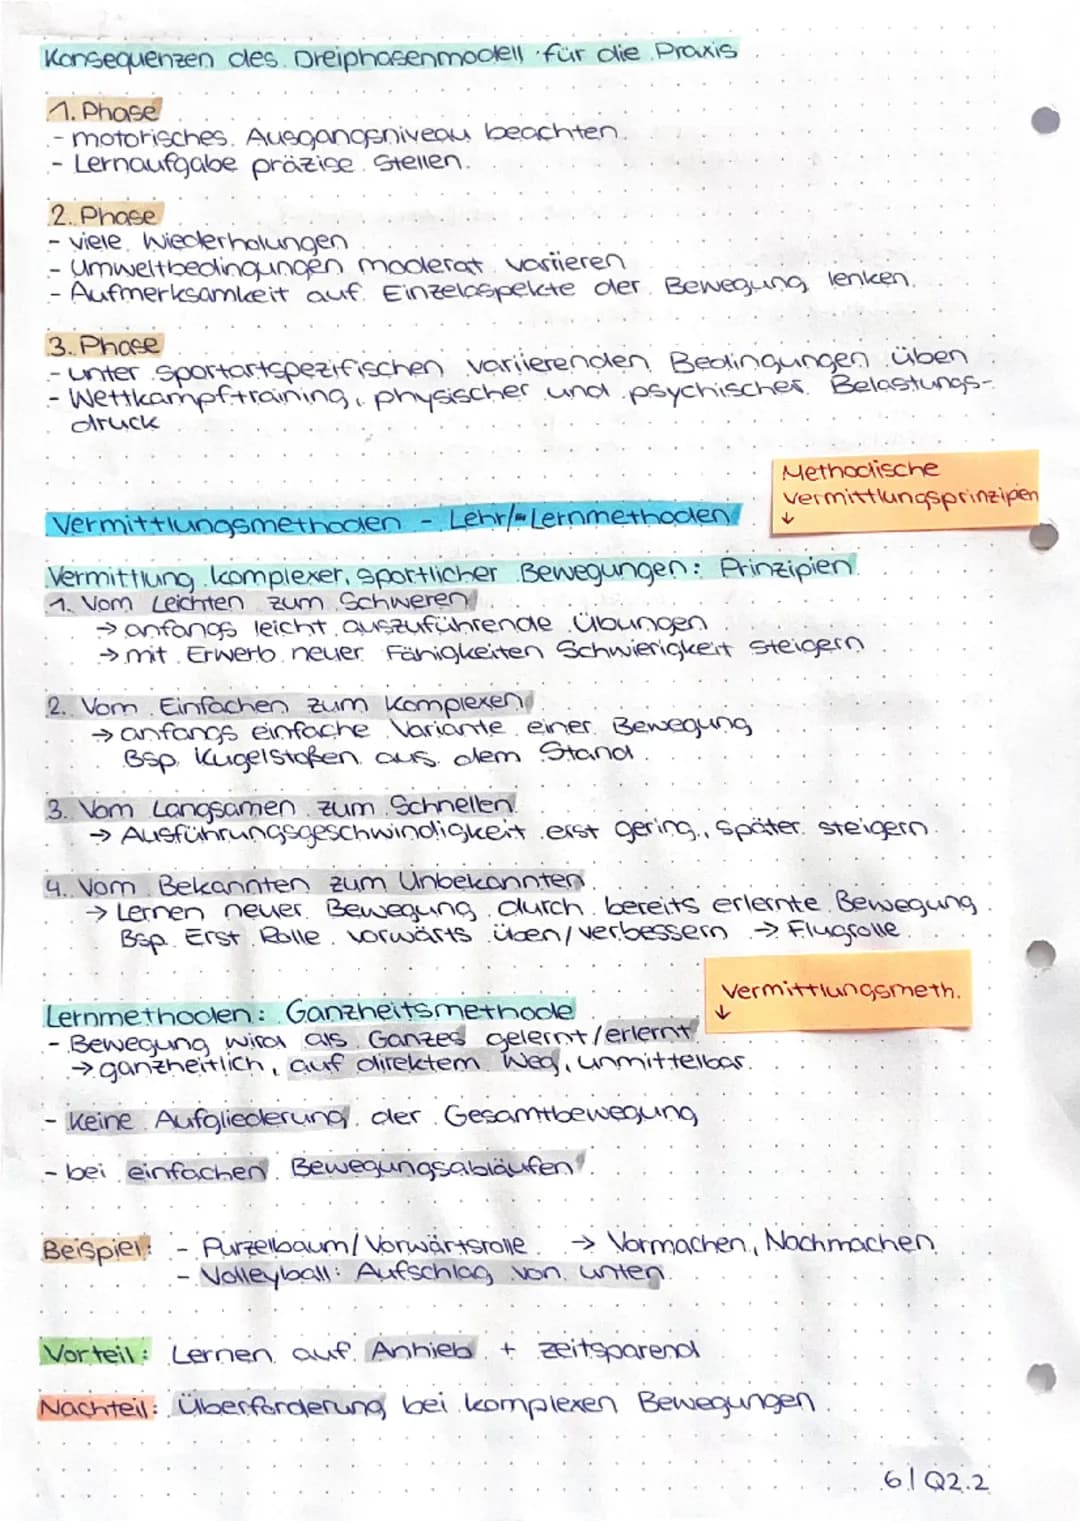 Konsequenzen des Dreiphasenmodell für die Praxis
1. Phase
- motorisches Ausgangsniveau beachten
- Lernaufgabe präzise stellen
2. Phase
- viele Wiederholungen
- Umweltbedingungen moderat variieren
- Aufmerksamkeit auf Einzelaspekte der Bewegung lenken
3. Phase
- unter sportartspezifischen variierenden Bedingungen üben
- Wettkampftraining, physischer und psychischer Belastungs-
druck
Methodische
Vermittlungsprinzipen
↓
Vermittlungsmethoden - Lehr/-Lernmethoden
Vermittlung komplexer, sportlicher Bewegungen: Prinzipien
1. Vom Leichten zum Schweren
→ anfangs leicht auszuführende Übungen
→ mit Erwerb neuer Fähigkeiten Schwierigkeit steigern
2. Vom Einfachen zum Komplexen
→ anfangs einfache Variante einer Bewegung
Bsp. Kugelstoßen aus dem Stand
3. Vom Langsamen zum Schnellen
→ Ausführungsgeschwindigkeit erst gering, später steigern
4. Vom Bekannten zum Unbekannten
→ Lernen neuer Bewegung durch bereits erlernte Bewegung
Bsp. Erst Rolle vorwärts üben/verbessern → Flugrolle
Vermittlungsmeth.
↓
Lernmethoden: Ganzheitsmethode
- Bewegung wird als Ganzes gelernt/erlernt
→ ganzheitlich, auf direktem Weg, unmittelbar
- keine Aufgliederung der Gesamtbewegung
- bei einfachen Bewegungsabläufen
Beispiel: - Purzelbaum/Vorwärtsrolle → Vormachen, Nachmachen
- Volleyball: Aufschlag von unten
Vorteil: Lernen auf Anhieb + zeitsparend
Nachteil: Überforderung bei komplexen Bewegungen
6/Q2.2